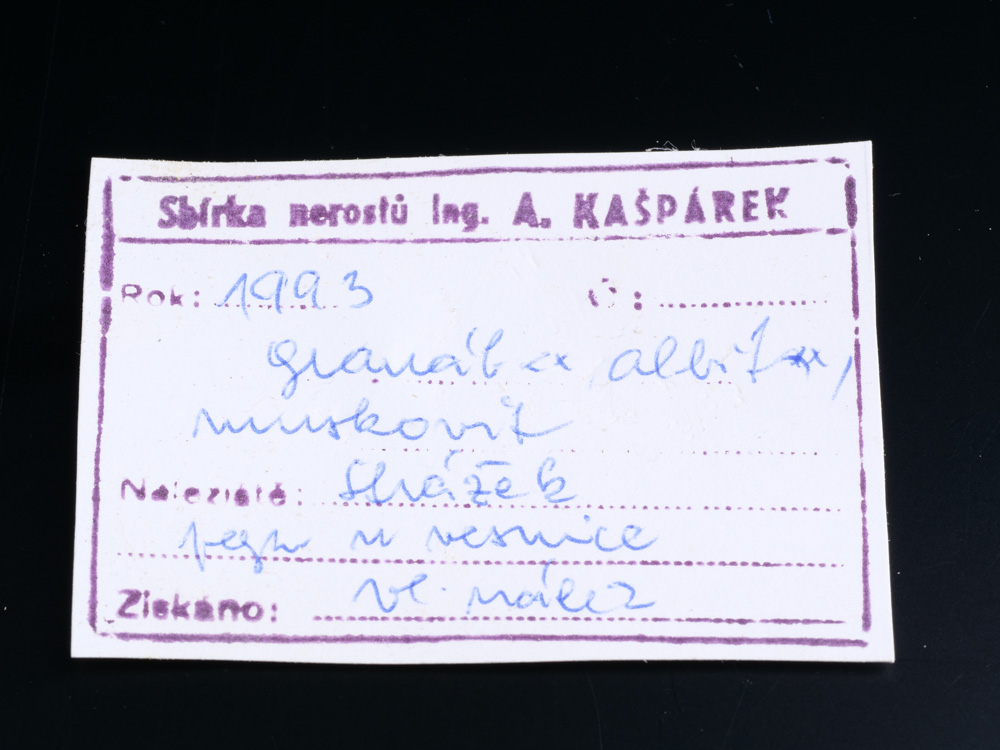 Sbírka nerostů Ing. A. KAŠPÁREK
Rok: 1993 Č:
granát xx albit xx,
muskovit
Naleziště: Strážek
pegm u vesnice
Získáno: vl. nález